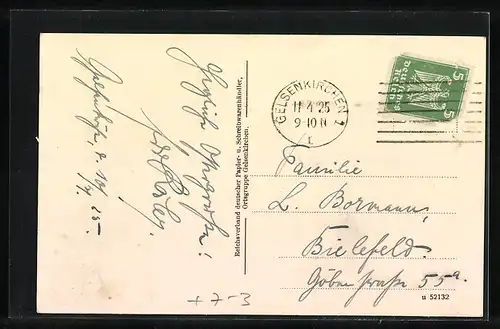 Gelsenkirchen, d. 10/4. 25.
Herzliche Ostergrüße!
Reichsverband deutscher Papier- u. Schreibwarenhändler,
Ortsgruppe Gelsenkirchen.
GELSENKIRCHEN 1
11.4.25
9-10 N
Deutsches
Reich
5
5
Familie
L. Bormann,
Bielefeld.
Göbenstraße 55a.
u 52132
+ 7-3